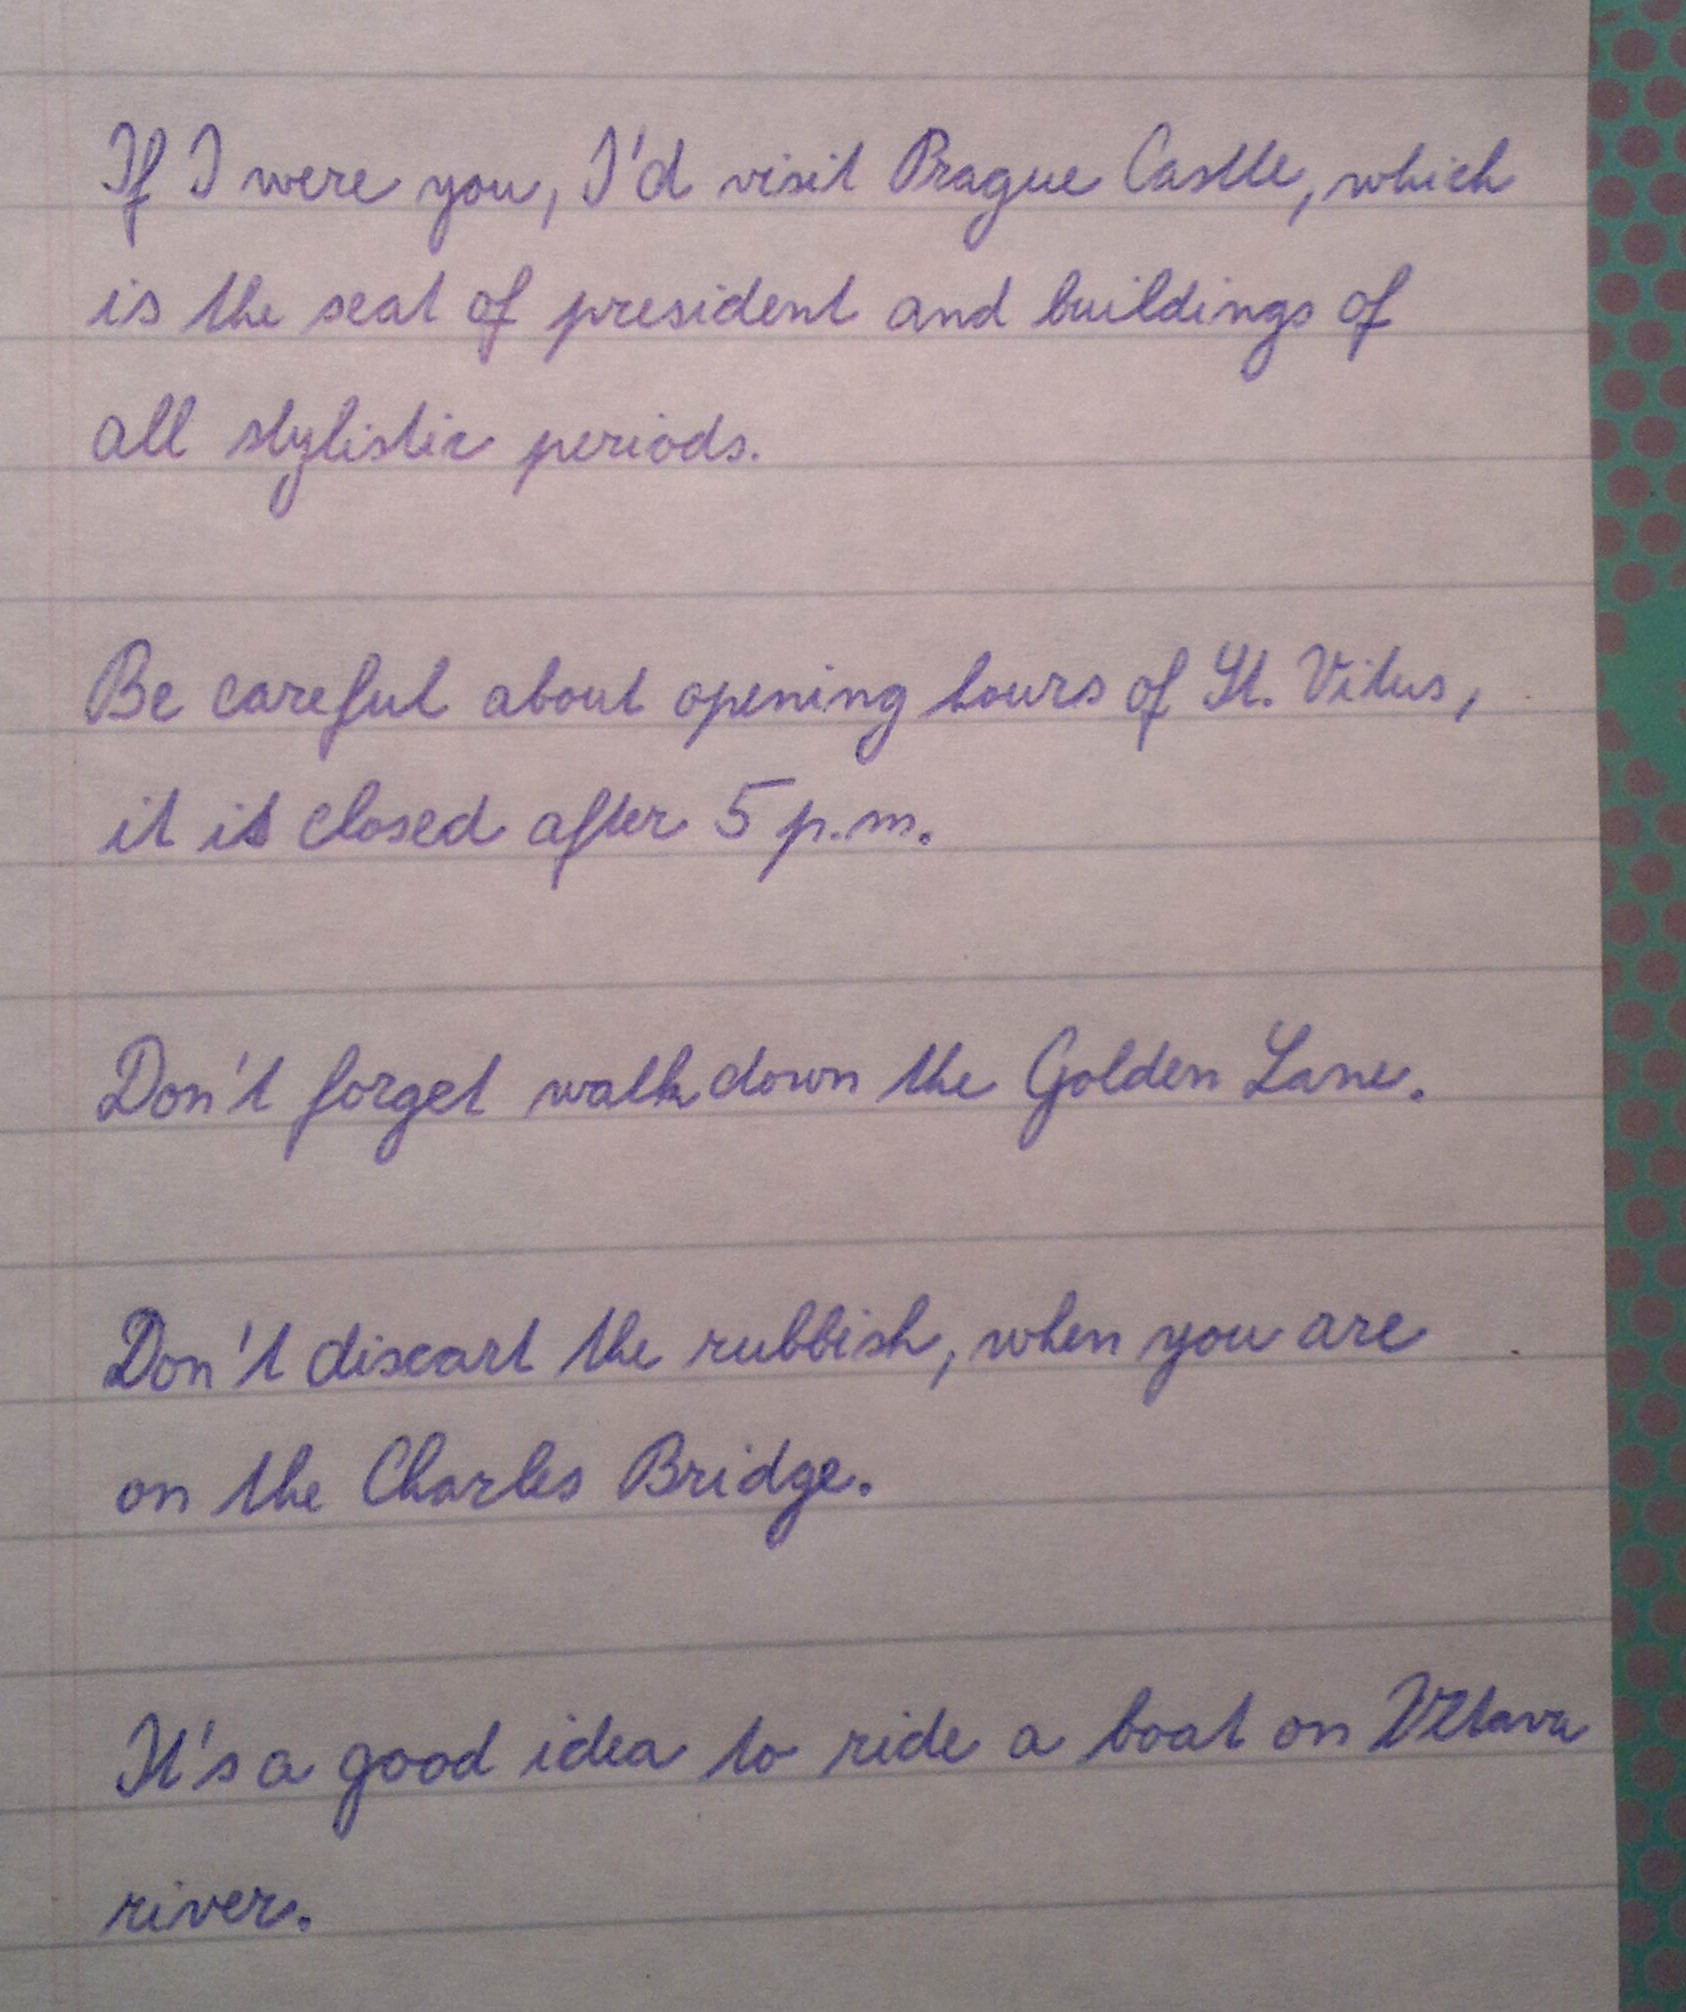 If I were you, I'd visit Prague Castle, which
is the seat of president and buildings of
all stylistic periods.
Be careful about opening hours of St. Vitus,
it is closed after 5 p.m.
Don't forget walk down the Golden Lane.
Don't discart the rubbish, when you are
on the Charles Bridge.
It's a good idea to ride a boat on Vltava
river.